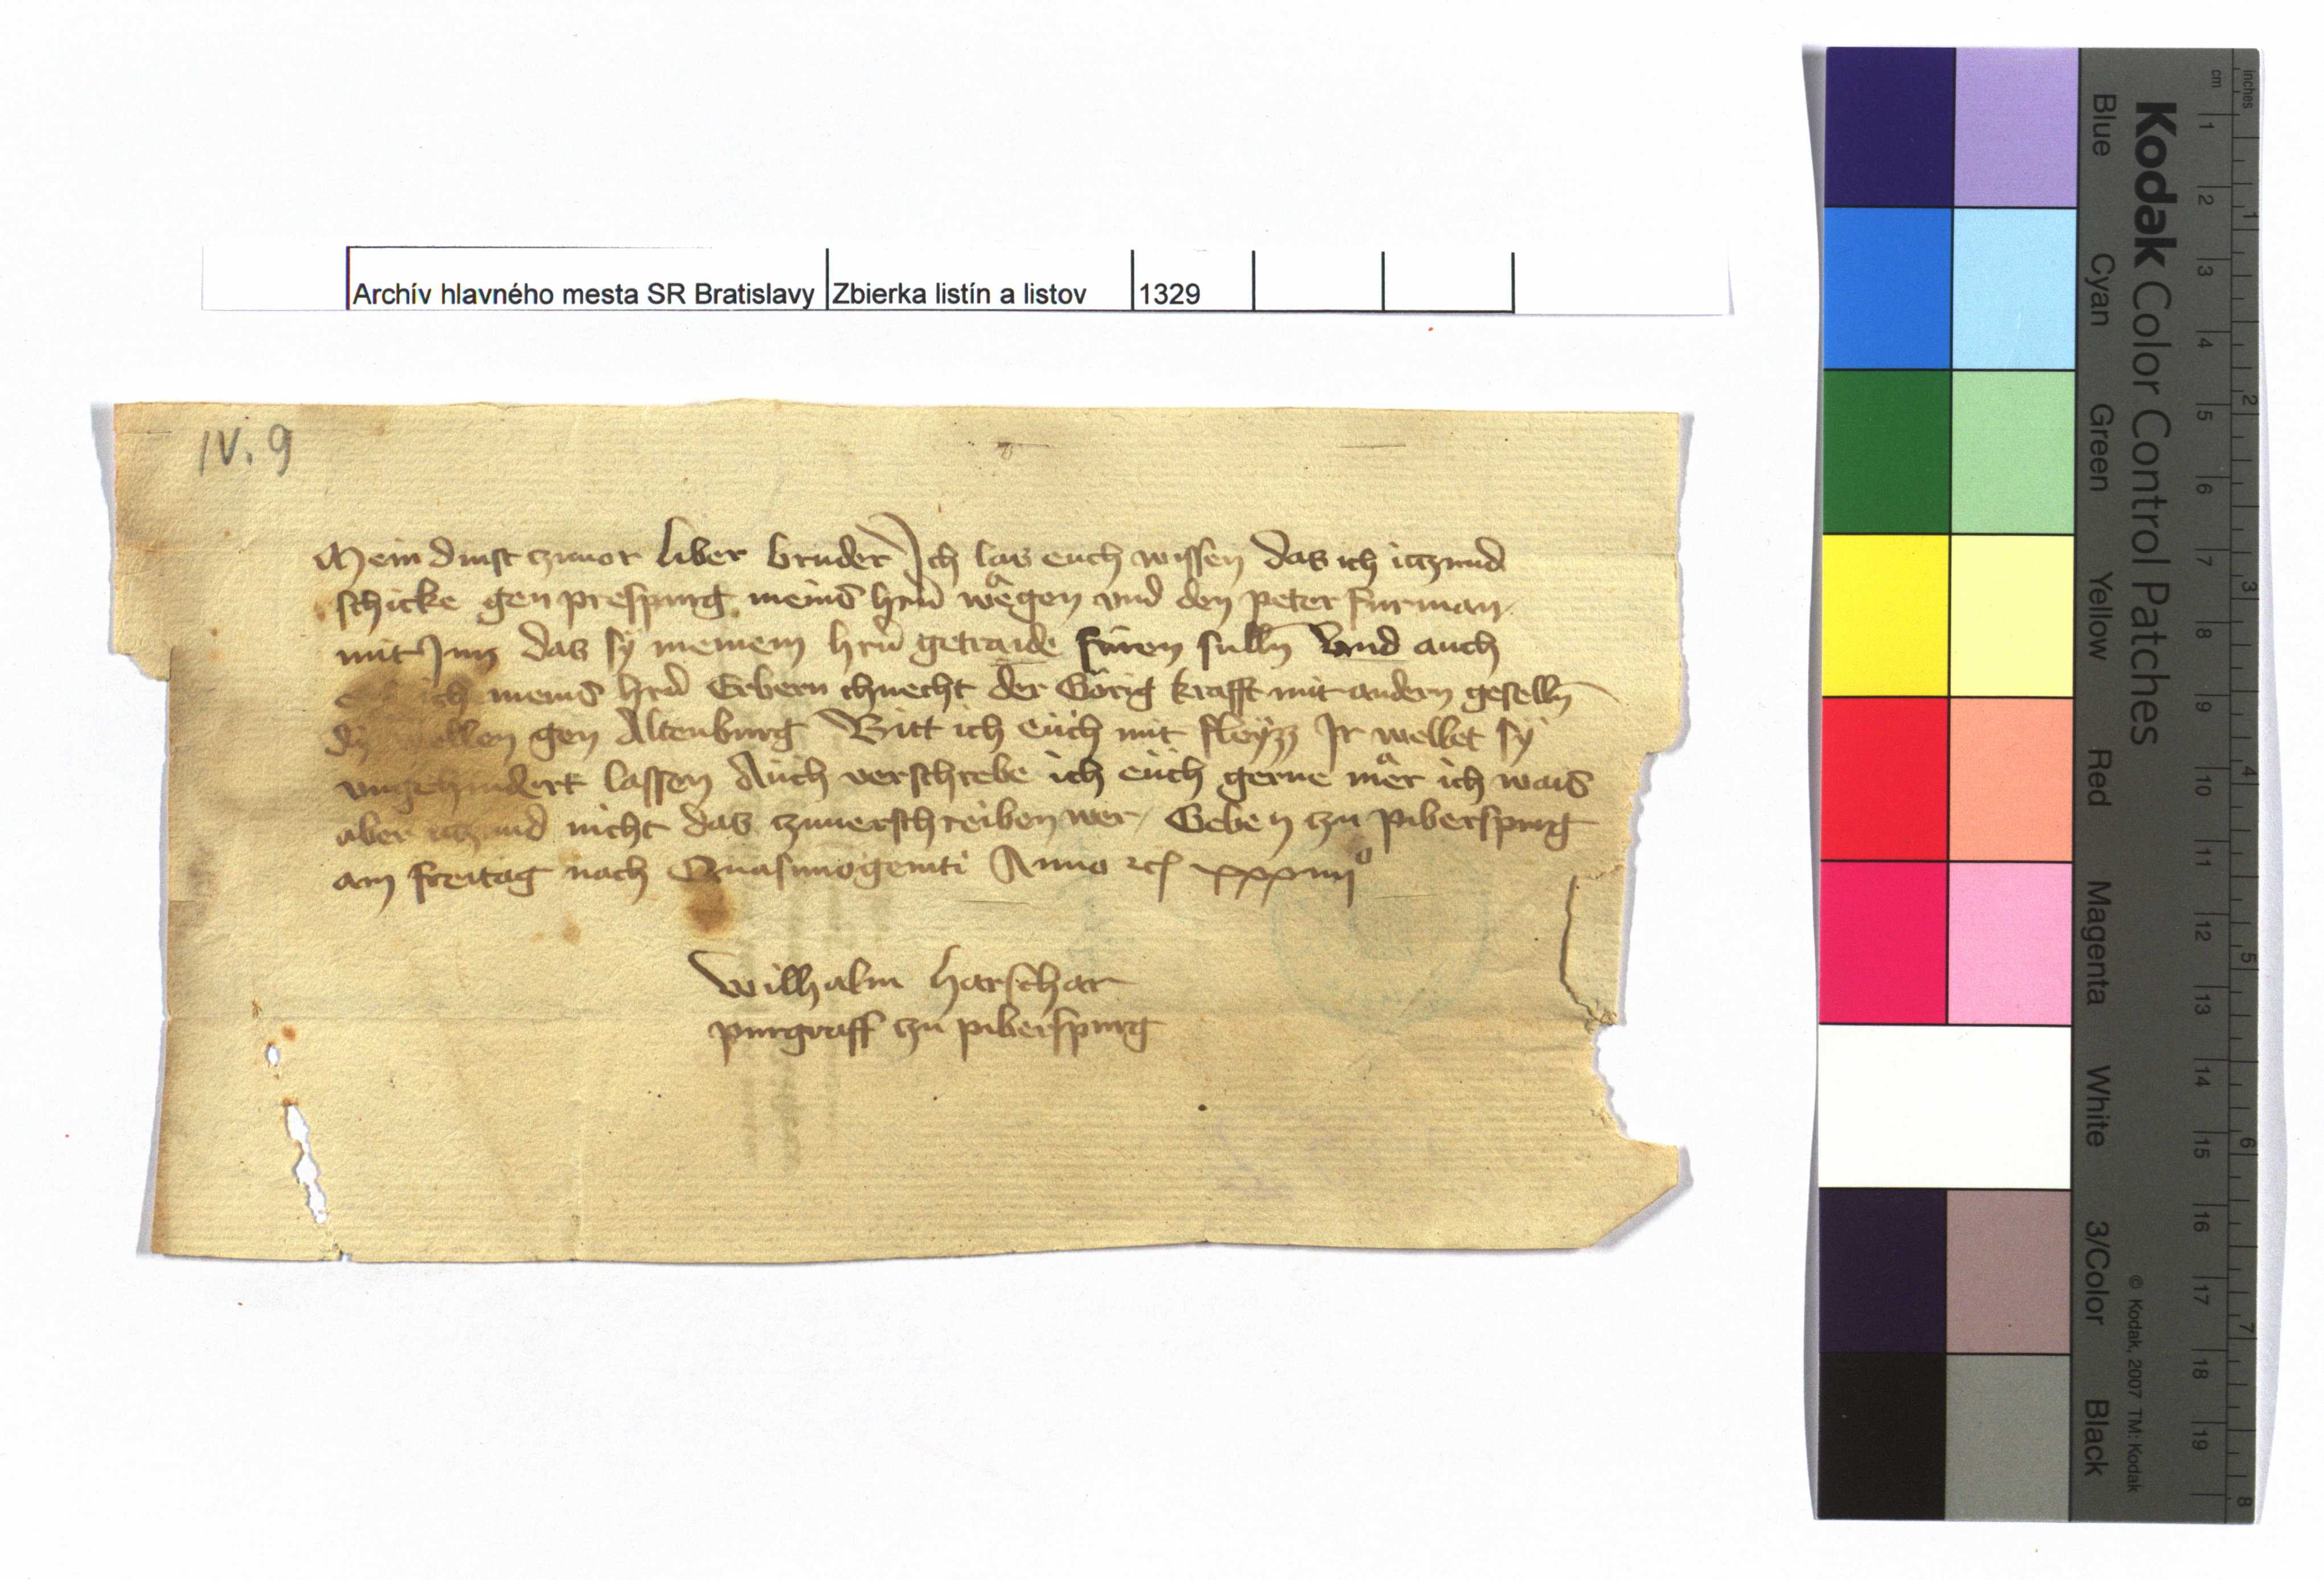 Archív hlavného mesta SR Bratislavy Zbierka listín a listov 1329
IV. 9
Mein dinst zuuor liber bruder Ich las euch wissen das ich itzund
schicke gen prespurg meins hrn wägen vnd den peter furman
mit Jm das sy meinem hrn getraide füren sulln Vnd auch
ich meins hrn Erbern chnecht der Görig krafft mit andern geselln
dy wellen gen Altenburg Bitt ich euch mit fleyzz Jr wellet sy
vngehindert lassen Auch verschrebe ich euch gerne mär ich wais
aber itzund nicht das zuuerschreiben wer Geben zu piberspurg
am freitag nach Quasimogeniti Anno etc xxxiiij°
Wilhalm harschar
purgraff zu piberspurg
Kodak Color Control Patches
Blue Cyan Green Yellow Red Magenta White 3/Color Black
© Kodak, 2007 TM: Kodak
inches 1 2 3 4 5 6 7 8
cm 1 2 3 4 5 6 7 8 9 10 11 12 13 14 15 16 17 18 19